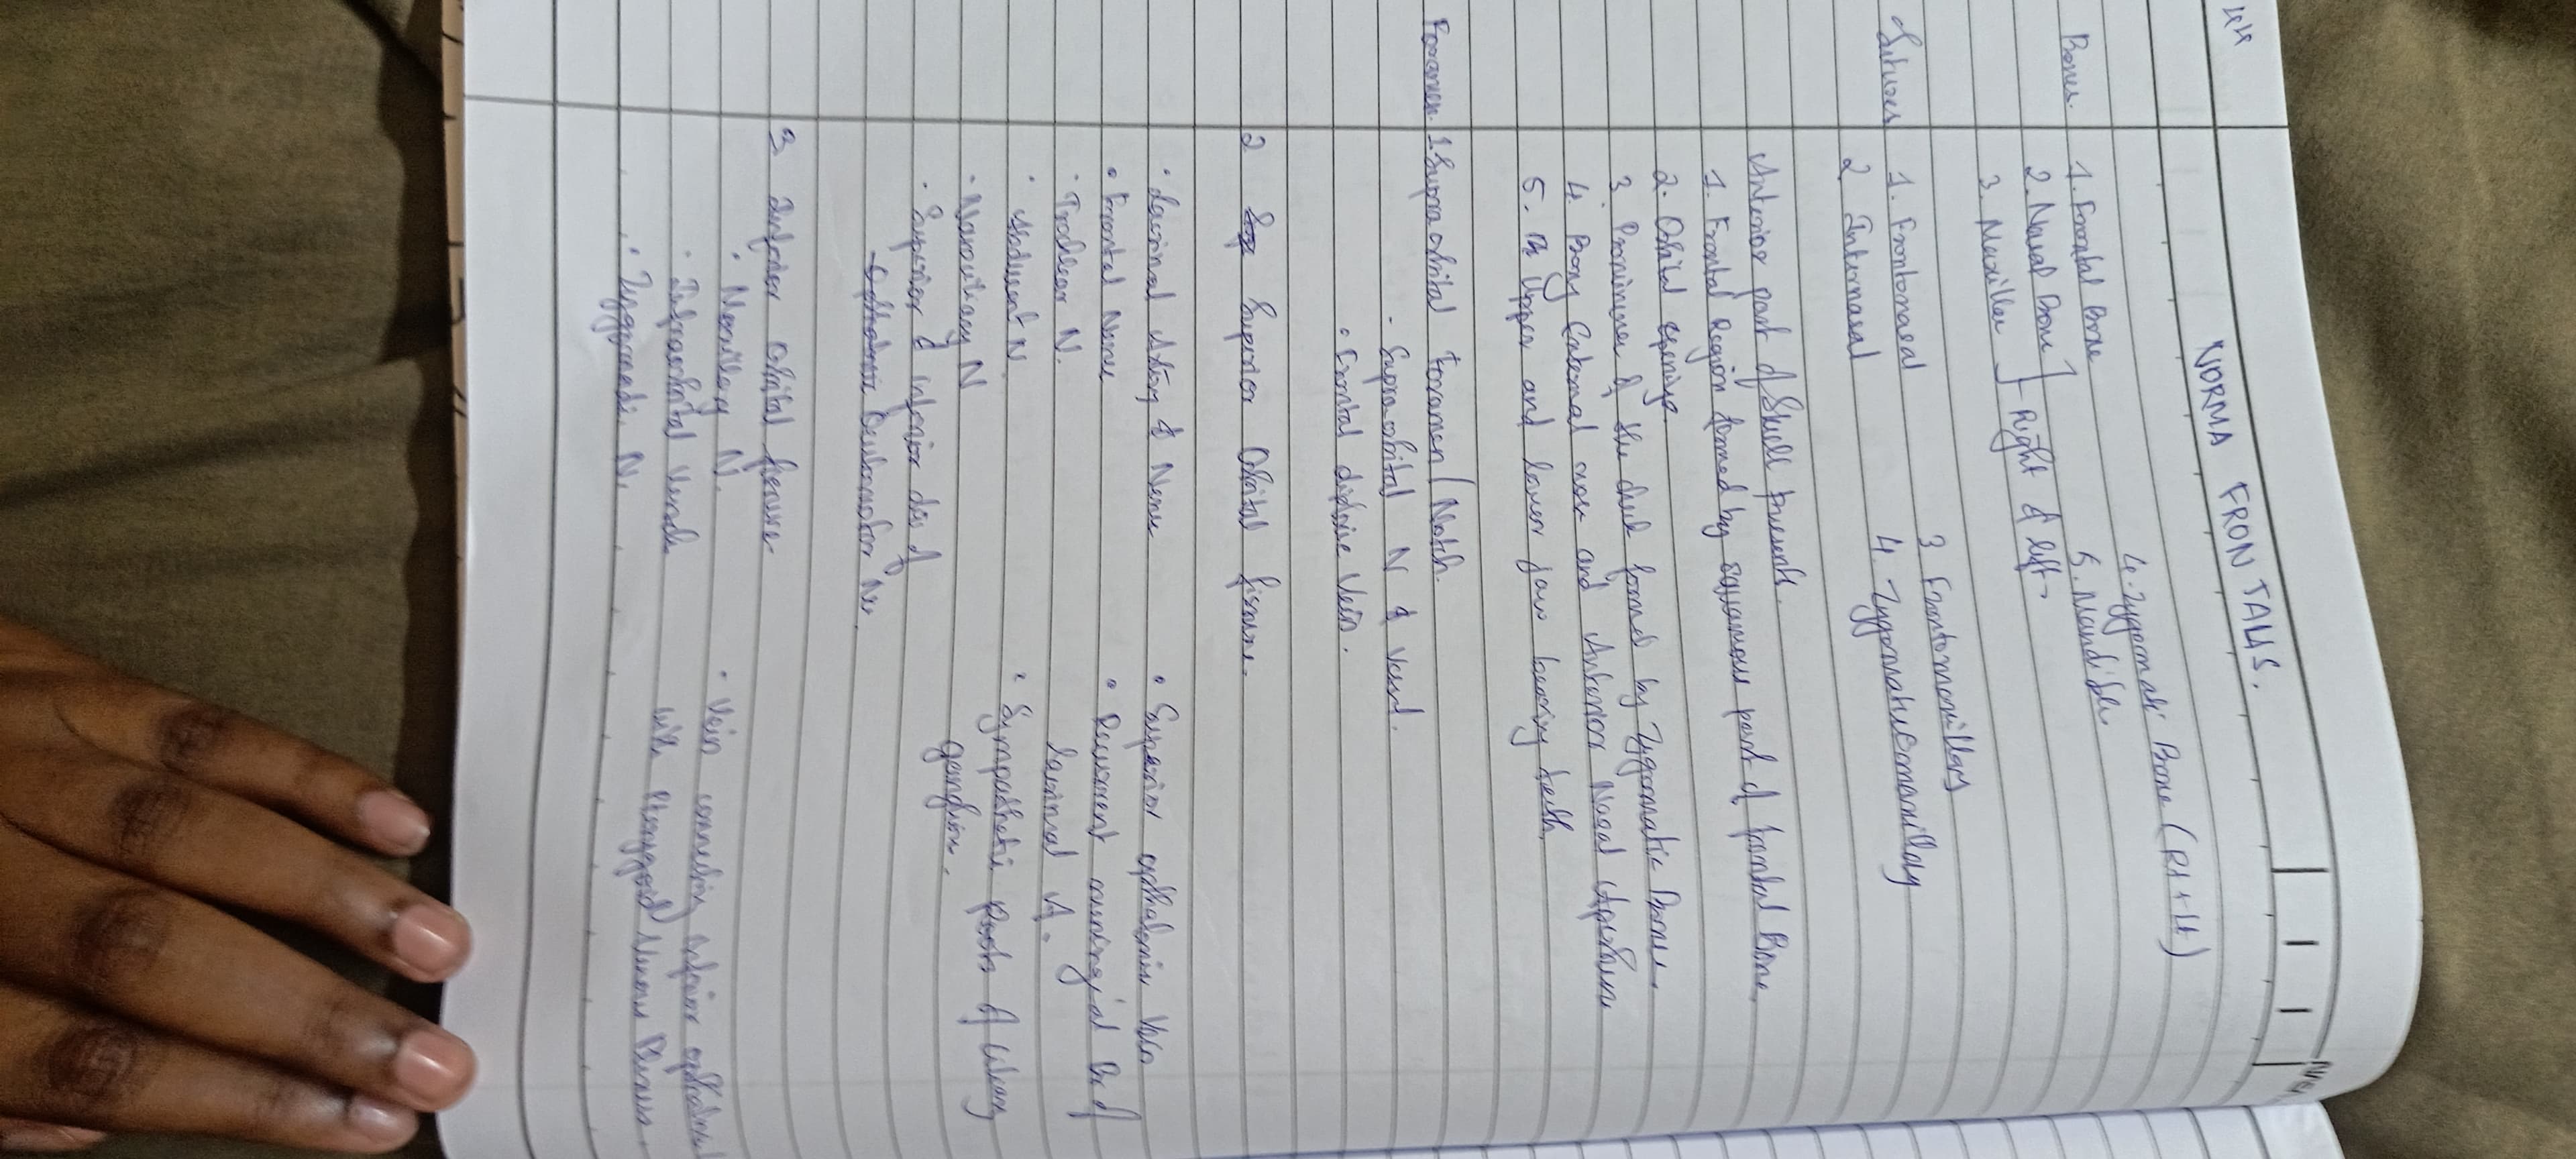 44
NORMA FRONTALIS.
Bones. 1. Frontal Bone 4. Zygomatic Bone (Rt + Lt)
2. Nasal Bone 5. Mandible.
3. Maxillae Right & left.
Sutures 1. Frontonasal 3 Frontomaxillary
2 Internasal 4. Zygomaticomaxillary
Anterior part of Skull presents.
1. Frontal Region formed by squamous part of frontal Bone.
2. Orbital openings.
3. Prominence of the cheek formed by Zygomatic Bone.
4. Bony External nose and Anterior Nasal Aperture
5. Upper and lower jaw bearing teeth
Foramen. 1. Supraorbital Foramen / Notch.
• Supraorbital N & Vessel.
• Frontal diploic Vein.
2 Superior Orbital fissure.
• Lacrimal Artery & Nerve • Superior opthalmic Vein
• Frontal Nerve • Recurrent meningeal Br of
• Troclear N. lacrimal A.
• Abducent N. • Sympathetic Roots of ciliary
• Nasociliary N ganglion.
• Superior & inferior div of
Occulomotor Nr.
3. Inferior orbital fissure
• Maxillary N. • Vein connecting inferior
• Infraorbital Vessels with Pterygoid Venous Plexus.
• Zygomatic N.